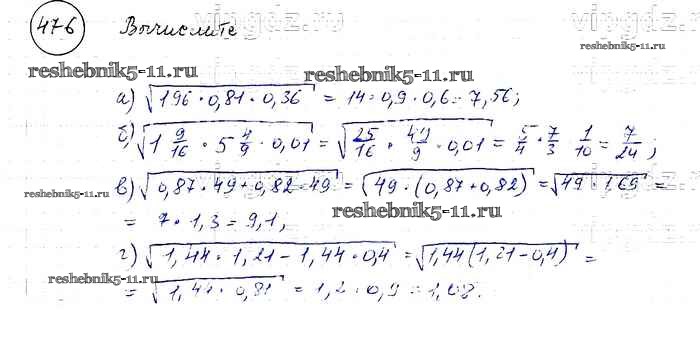 476 Вычислите
reshebnik5-11.ru reshebnik5-11.ru
а) √196·0,81·0,36 = 14·0,9·0,6 = 7,56;
б) √1 9/16 · 5 4/9 · 0,01 = √25/16 · 49/9 · 0,01 = 5/4 · 7/3 1/10 = 7/24;
в) √0,87·49+0,82·49 = √49·(0,87+0,82) = √49·1,69 =
reshebnik5-11.ru
= 7·1,3 = 9,1;
reshebnik5-11.ru
г) √1,44·1,21-1,44·0,4 = √1,44(1,21-0,4) =
reshebnik5-11.ru
= √1,44·0,81 = 1,2·0,9 = 1,08.